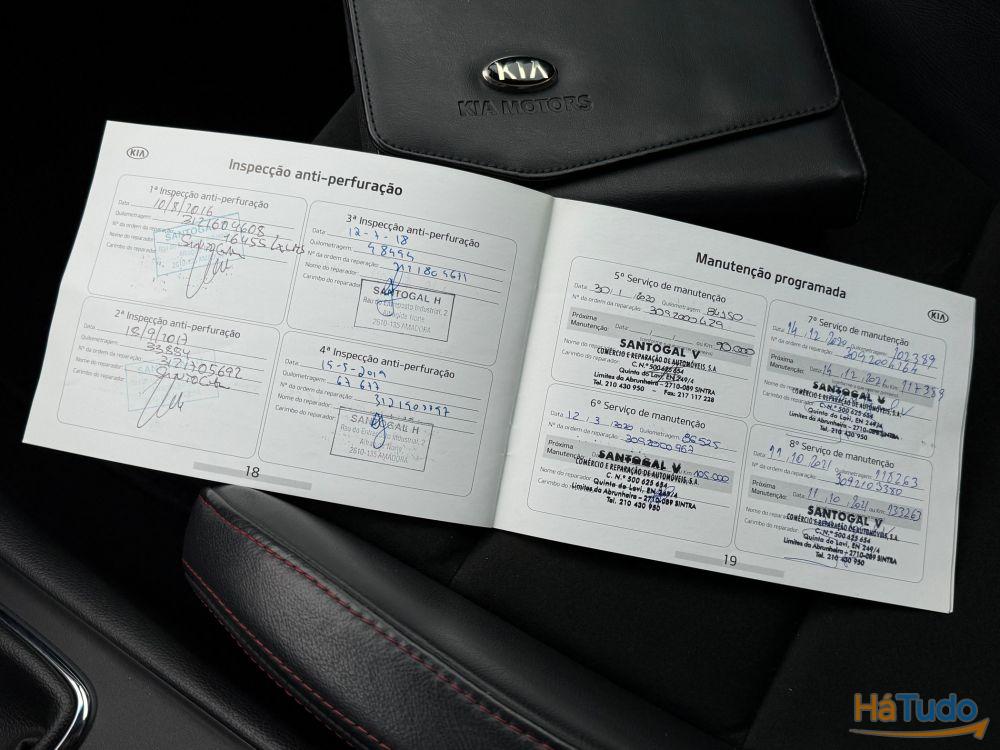 KIA
KIA MOTORS
KIA
Inspecção anti-perfuração
1ª Inspecção anti-perfuração
Data 10/8/2016
Quilometragem
Nº da ordem da reparação 3121604608
Nome do reparador 16455
Carimbo do reparador
SANTOGAL
2ª Inspecção anti-perfuração
Data 18/9/2017
Quilometragem 33554
Nº da ordem da reparação 3121705692
Nome do reparador
Carimbo do reparador
3ª Inspecção anti-perfuração
Data 12-7-18
Quilometragem 48494
Nº da ordem da reparação
Nome do reparador
Carimbo do reparador
SANTOGAL H
Rua do Entreposto Industrial, 2
Alfragide Norte
2610-135 AMADORA
4ª Inspecção anti-perfuração
Data 15-5-2019
Quilometragem 67 677
Nº da ordem da reparação
Nome do reparador
Carimbo do reparador
SANTOGAL H
Rua do Entreposto Industrial, 2
Alfragide Norte
2610-135 AMADORA
18
Manutenção programada
KIA
5º Serviço de manutenção
Data 30/1/2020 Quilometragem 84150
Nº da ordem da reparação: 3092000429
Próxima Manutenção: Data ou Km 90.000
Nome do reparador
Carimbo do
SANTOGAL V
COMÉRCIO E REPARAÇÃO DE AUTOMÓVEIS, S.A.
C. N.º 500 625 654
Quinta do Lavi, EN 249/4
Limites da Abrunheira - 2710-089 SINTRA
Tel. 210 430 950 - Fax: 217 117 228
6º Serviço de manutenção
Data 12/3/2020 Quilometragem 86525
Nº da ordem da reparação: 3092000967
Próxima Manutenção: ou Km 105.000
Nome do reparador
Carimbo do
SANTOGAL V
COMÉRCIO E REPARAÇÃO DE AUTOMÓVEIS, S.A.
C. N.º 500 625 654
Quinta do Lavi, EN 249/4
Limites da Abrunheira - 2710-089 SINTRA
Tel. 210 430 950
7º Serviço de manutenção
Data 14.12.2020 Quilometragem 102389
Nº da ordem da reparação: 3092004764
Próxima Manutenção: Data 14.12.2021 ou Km 117389
Nome do reparador
Carimbo do
SANTOGAL V
COMÉRCIO E REPARAÇÃO DE AUTOMÓVEIS, S.A.
C. N.º 500 625 654
Quinta do Lavi, EN 249/4
Limites da Abrunheira - 2710-089 SINTRA
Tel. 210 430 950
8º Serviço de manutenção
Data 11.10.2021 Quilometragem 118263
Nº da ordem da reparação: 3092103380
Próxima Manutenção: Data 11.10.2021 ou Km 133263
Nome do reparador
Carimbo do
SANTOGAL V
COMÉRCIO E REPARAÇÃO DE AUTOMÓVEIS, S.A.
C. N.º 500 625 654
Quinta do Lavi, EN 249/4
Limites da Abrunheira - 2710-089 SINTRA
Tel. 210 430 950
19
HáTudo